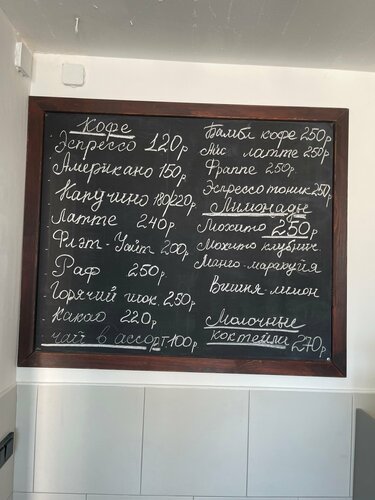 Кофе
Эспрессо 120р
Американо 150р
Капучино 180/220р
Латте 240р
Флэт-Уайт 200р
Раф 250р
Горячий шок. 250р
Какао 220р
чай в ассорт-100р
Бамбл кофе 250р
Айс латте 250р
Фраппе 250р
Эспрессо тоник 250р
Лимонады
Мохито 250р
Мохито клубник
Манго-маракуйя
Вишня-лимон
Молочные
коктейли 270р